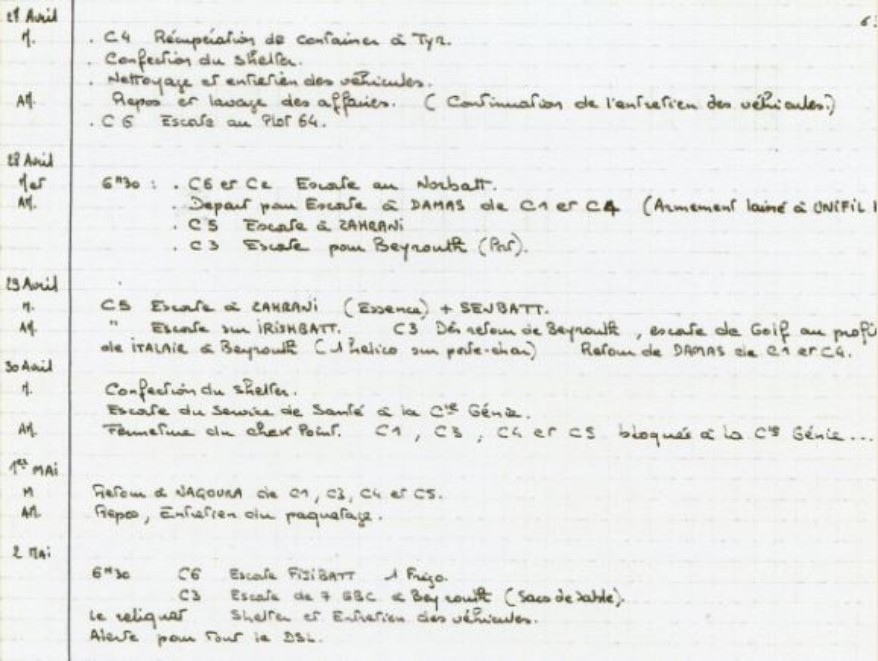 27 Avril 6
M. . C4 Récupération de container à Tyr.
. Confection du Shelter.
. Nettoyage et entretien des véhicules.
AM. Repos et lavage des affaires. ( Continuation de l'entretien des véhicules.)
. C6 Escorte au Plot 64.
28 Avril
M et 6H30 : . C6 et C2 Escorte au Norbatt.
AM. . Depart pour Escorte à DAMAS de C1 et C4 (Armement laissé à UNIFIL
. C5 Escorte à ZAHRANI
. C3 Escorte pour Beyrouth (Port).
29 Avril
M. C5 Escorte à ZAHRANI (Essence) + SENBATT.
AM. " Escorte sur IRISHBATT. C3 Dès retour de Beyrouth, escorte de Golf au profi
de ITALAIR à Beyrouth (1 hélico sur porte-char) Retour de DAMAS de C1 et C4.
30 Avril
M. Confection du Shelter.
Escorte du Service de Santé à la Cie Génie.
AM. Fermeture du chek Point. C1, C3, C4 et C5 bloqués à la Cie Génie...
1er MAI
M Retour à NAQOURA de C1, C3, C4 et C5.
AM. Repos, Entretien du paquetage.
2 MAI
6H30 C6 Escorte FIJIBATT 1 Frigo.
C3 Escorte de 7 GBC à Beyrouth (Sacs de sable).
Le reliquat Shelter et Entretien des véhicules.
Alerte pour tout le DSL.